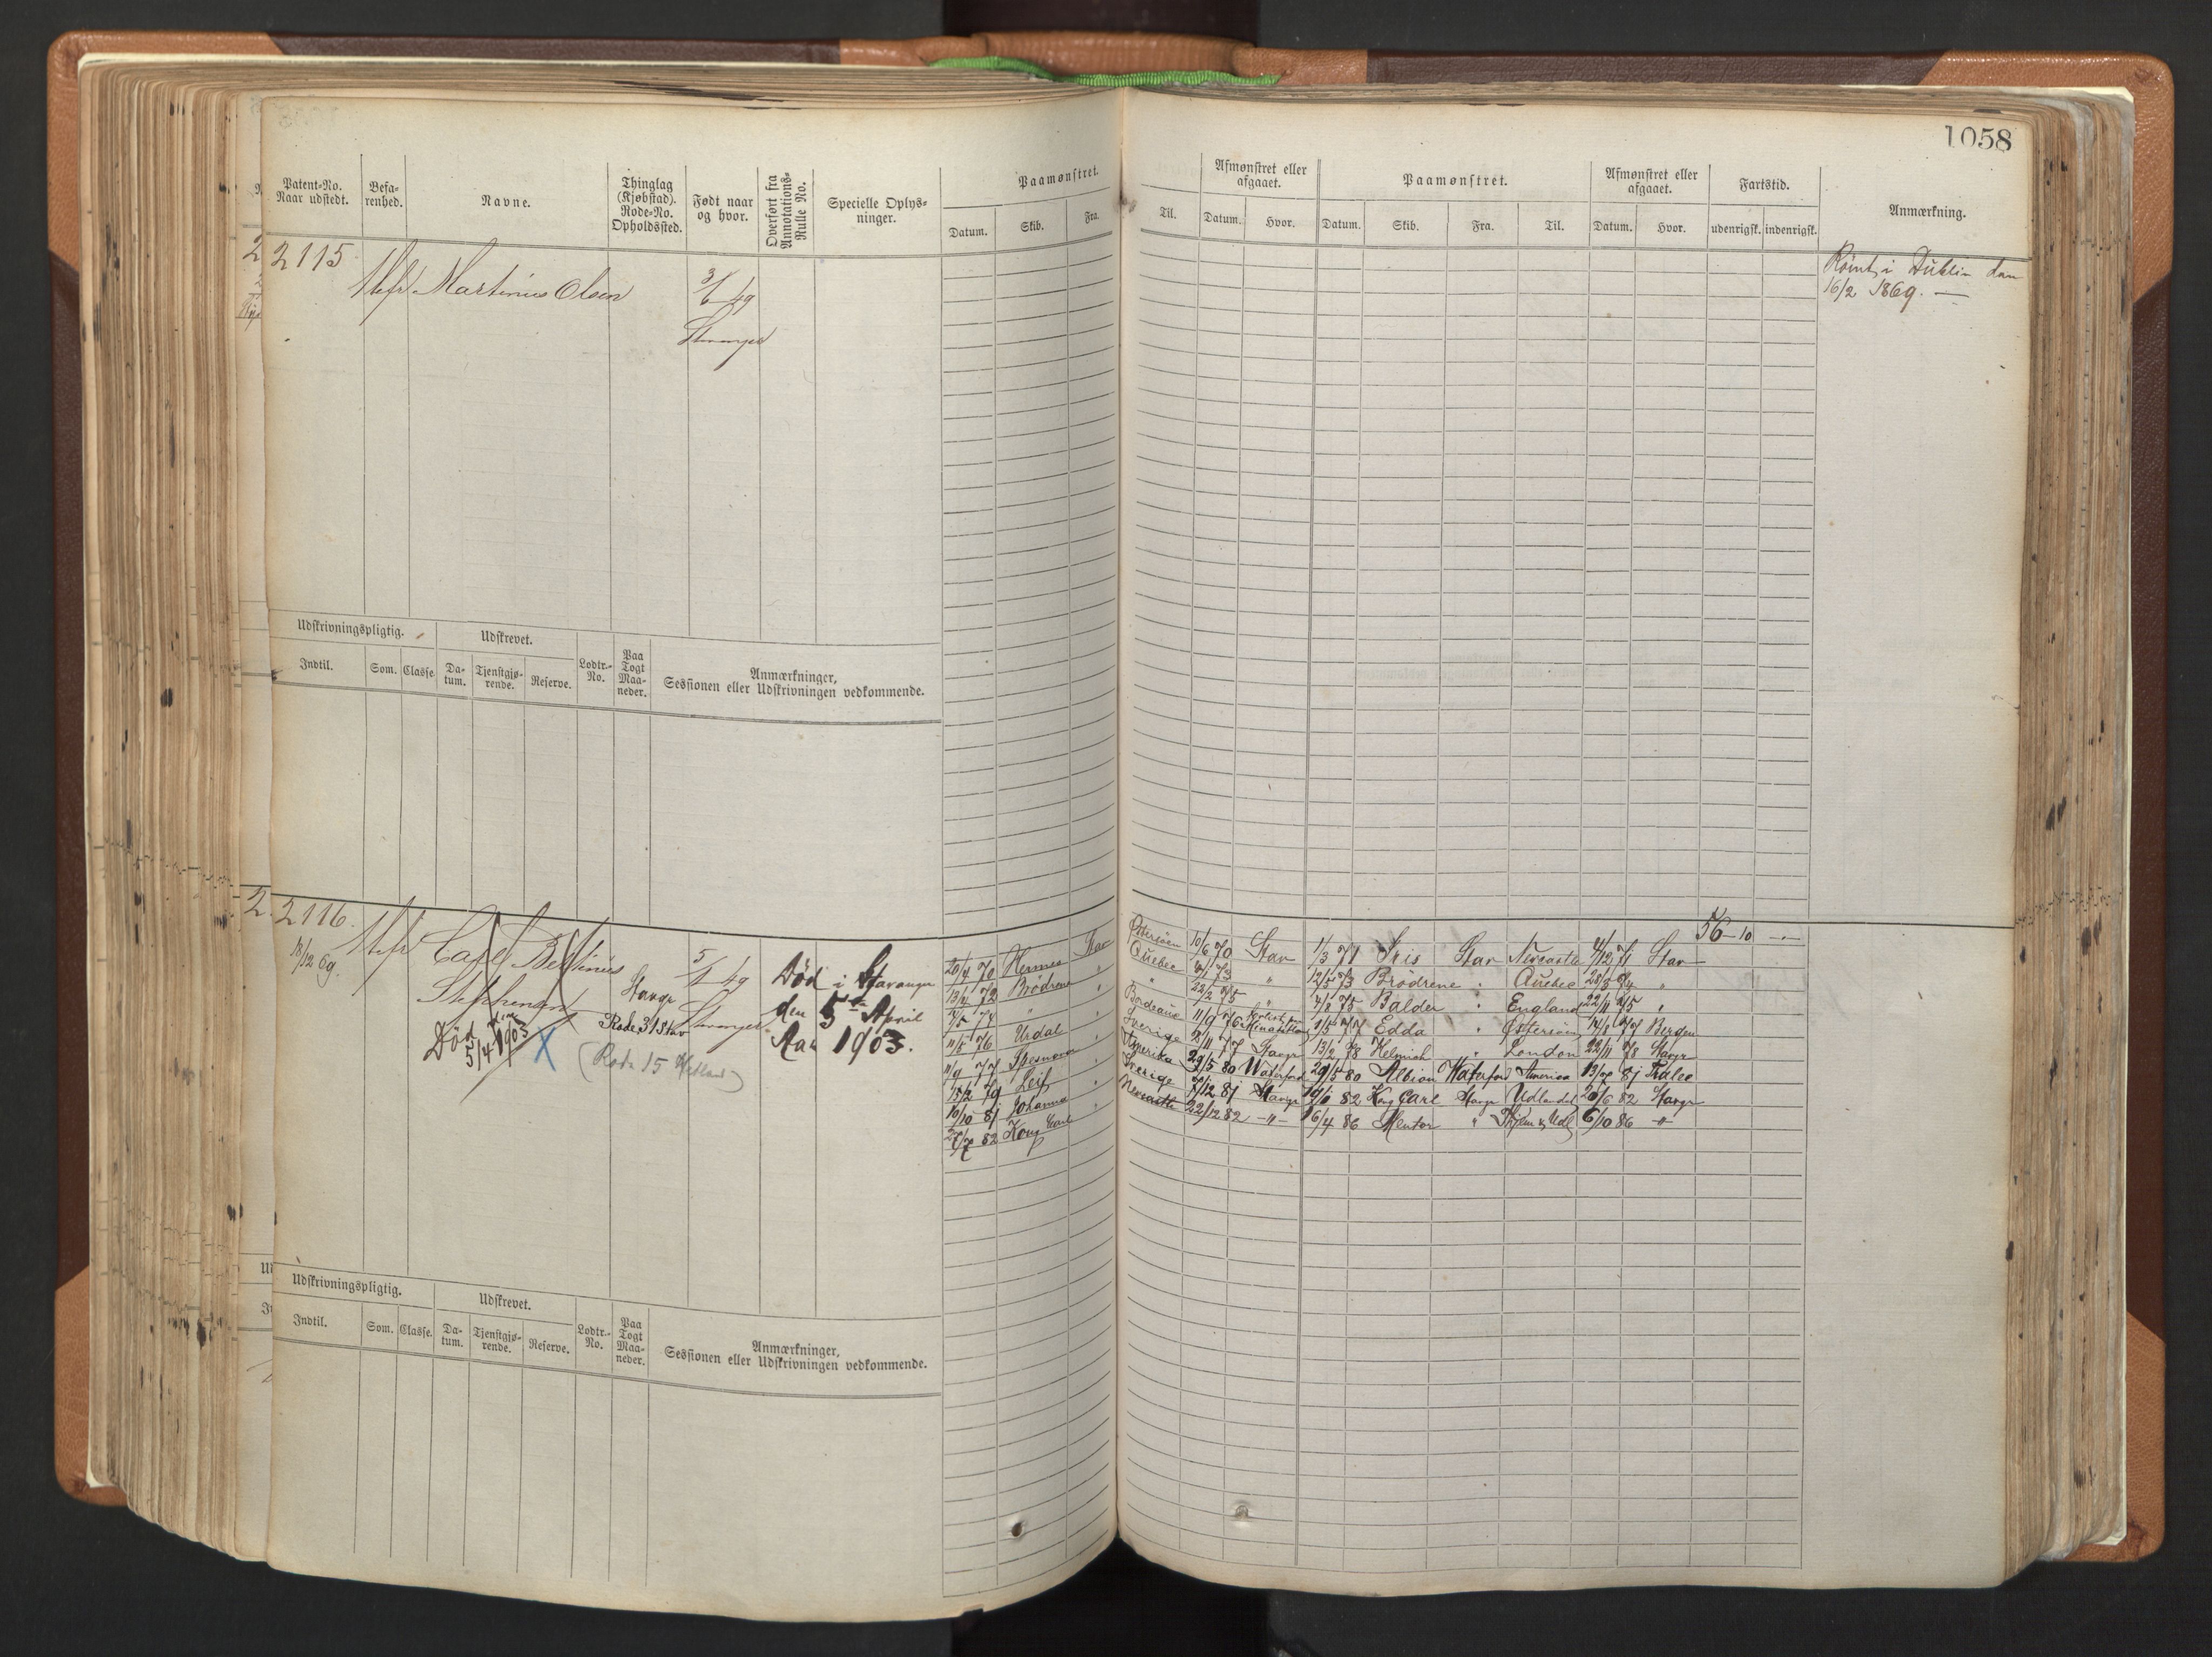 1058
Patent-No. Naar udstedt.
Befarenhed.
Navne.
Thinglag (Kjøbstad). Rode-No. Opholdssted.
Født naar og hvor.
Overført fra Annotations-Rulle No.
Specielle Oplysninger.
Paamønstret.
Datum. Skib. Fra. Til.
Afmønstret eller afgaaet.
Datum. Hvor.
Paamønstret.
Datum. Skib. Fra. Til.
Afmønstret eller afgaaet.
Datum. Hvor.
Fartstid.
udenrigsk. indenrigsk.
Anmærkning.
2115
Martinius Olsen
3/6 49
Stavanger
Rømt i Dublin den
16/2 1869. —
Udskrivningspligtig.
Indtil. Som. Classe.
Udskrevet.
Datum. Tjenstgjørende. Reserve.
Lodtr.-No.
Paa Togt Maaneder.
Anmærkninger,
Sessionen eller Udskrivningen vedkommende.
2116.
18/12 69.
Carl Bertinius
Død
5/4 1903
X
Stavgr
Rode 31 Stav
(Rode 15 Hetland)
49
Stavanger
Død i Stavanger
den 5te April
Aar 1903.
56-10
20/4 70 Hermes Stav Østersøen 10/6 70 Stav 1/3 71 Iris Stav Newcastle 4/12 71 Stav
13/4 72 Brödrene " Quebec 73 " 12/5 73 Brödrene " Quebec 74 "
74 " " " 22/2 75 " 75 Balder " England 22/11 75 "
11/5 76 Urdal " Bordeaux 11/9 76 77 Edda " Østersøen 77 Bergen
11/9 77 " Sverige 77 Stavgr 13/2 78 Helmich " London 22/11 78 Stavgr
15/2 79 Leif " Amerika 29/5 80 Waterford 29/5 80 Albion Waterford America 81 Tralee
10/10 81 Johanna " Sverige 7/12 81 Stavgr 82 Kong Carl Stavgr Udlandet 20/6 82 Stavgr
82 Kong Carl Newcastle 22/12 82 -"- 16/4 86 Mentor " 6/10 86 -"-
Udskrivningspligtig.
Indtil. Som. Classe.
Udskrevet.
Datum. Tjenstgjørende. Reserve.
Lodtr.-No.
Paa Togt Maaneder.
Anmærkninger,
Sessionen eller Udskrivningen vedkommende.